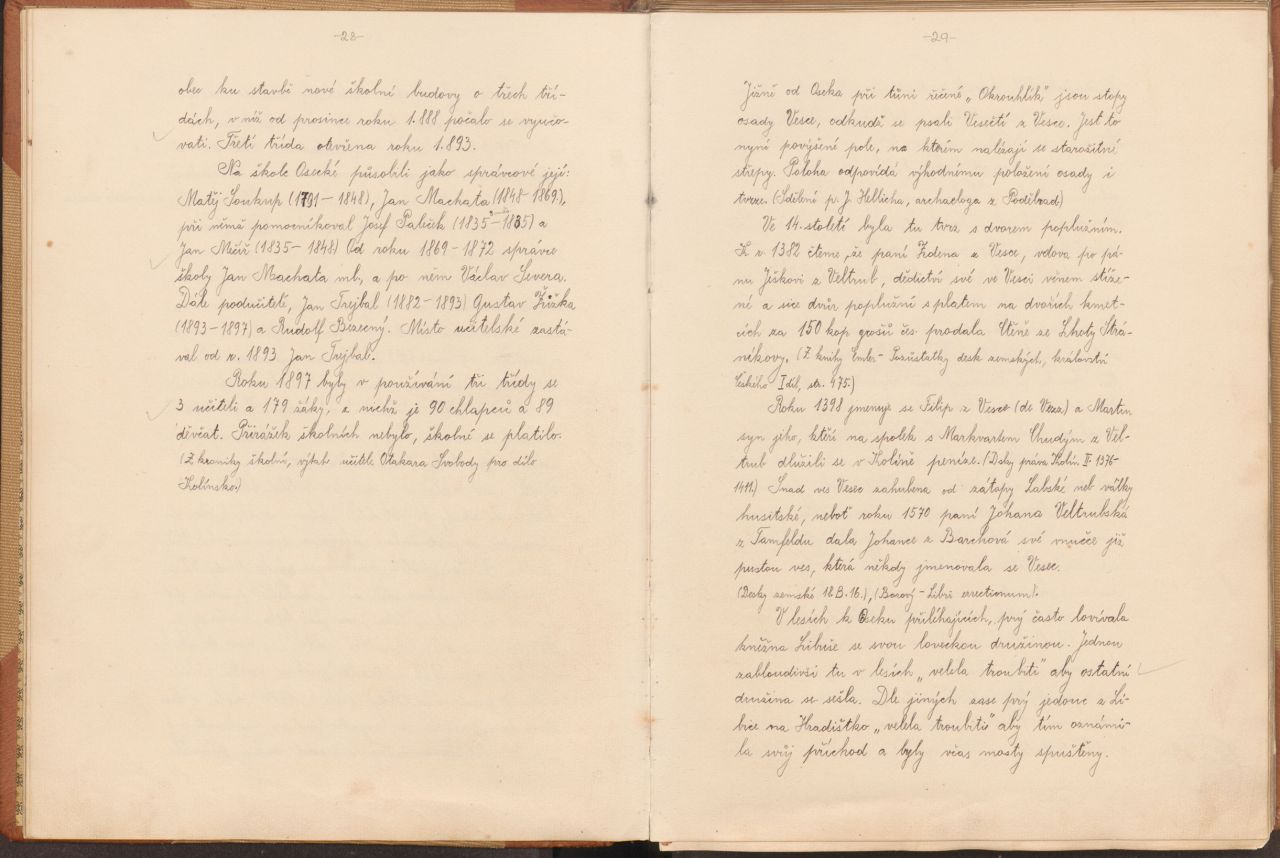 -28-
obec ku stavbě nové školní budovy o třech tří-
dách, v níž od prosince roku 1.888 počalo se vyučo-
vati. Třetí třída otevřena roku 1.893.
Na škole Osecké působili jako správcové její:
Matěj Soukup (1791-1848), Jan Machata (1848-1869),
při němž pomocníkoval Josef Paleček (1835-1835) a
Jan Mečíř (1835-1848) Od roku 1869-1872 správce
školy Jan Machata ml., a po něm Václav Severa.
Dále podučitelé, Jan Trejbal (1882-1893) Gustav Žižka
(1893-1897) a Rudolf Bezecný. Místo učitelské zastá-
val od r. 1893 Jan Trejbal.
Roku 1897 byly v používání tři třídy se
3 učiteli a 179 žáky, z nichž je 90 chlapců a 89
děvčat. Přirážek školních nebylo, školné se platilo.
(Z kroniky školní, výtah učitele Otakara Svobody pro dílo
Kolínsko.)
-29-
Jižně od Oseka při tůni řečené „Okrouhlík" jsou stopy
osady Vesce, odkudž se psali Vesečtí z Vesce. Jest to
nyní povýšené pole, na kterém nalézají se starožitné
střepy. Poloha odpovídá výhodnému položení osady i
tvrze. (Sdělení p. J. Hellicha, archaeloga z Poděbrad)
Ve 14. století byla tu tvrz s dvorem poplužním.
K r. 1382 čteme, že paní Zdena z Vesce, vdova po pá-
nu Ješkovi z Veltrub, dědictví své ve Vesci věnem stíže-
né a sice dvůr poplužní s platem na dvořích kmet-
cích za 150 kop grošů čes. prodala Vteně ze Lhoty Strá-
níkovy. (Z knihy Emler- Pozůstatky desk zemských, království
českého I díl, str. 475.)
Roku 1398 jmenuje se Filip z Vesce (de Vezz) a Martin
syn jeho, kteří na spolek s Markvartem Chudým z Vel-
trub dlužili se v Kolíně peníze. (Desky práva Kolín. II. 1376-
1411.) Snad ves Vesec zahubena od zátopy Labské neb války
husitské, neboť roku 1570 paní Johana Veltrubská
z Tamfeldu dala Johance z Barchová své vnučce již
pustou ves, která někdy jmenovala se Vesec.
(Desky zemské 18. B. 16.), (Borový - Libri errectionum).
V lesích k Oseku přiléhajících, prý často lovívala
kněžna Libuše se svou loveckou družinou. Jednou
zabloudivši tu v lesích „velela troubiti" aby ostatní
družina se sešla. Dle jiných zase prý jedouc z Li-
bice na Hradištko „velela troubiti" aby tím oznámi-
la svůj příchod a byly včas mosty spuštěny.